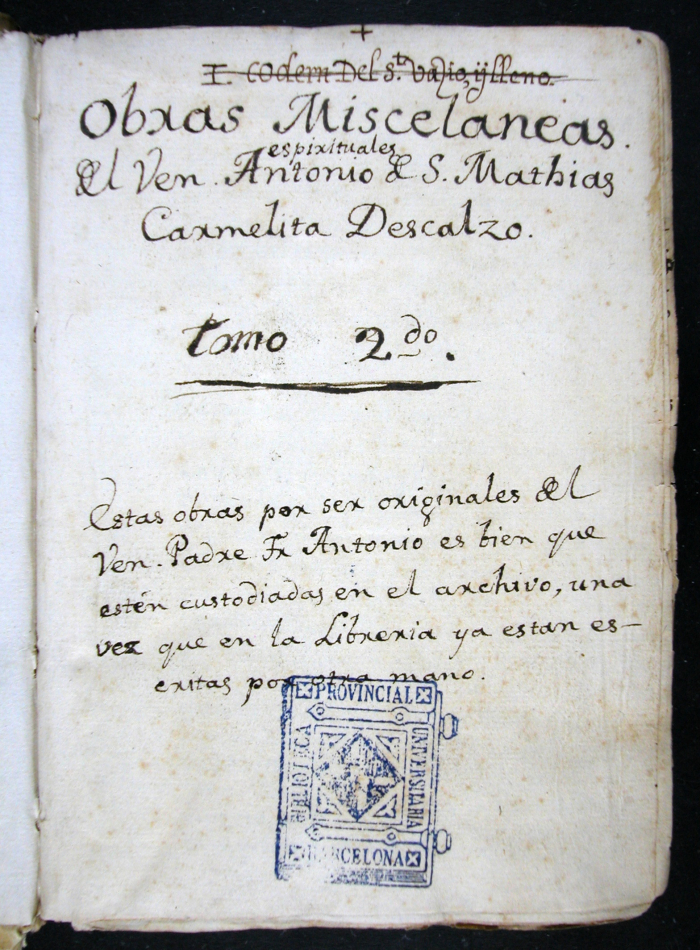 I. codern Del S.t Vazio, ÿ lleno.
Obras Miscelaneas.
espirituales
del Ven. Antonio de S. Mathias
Carmelita Descalzo.
Tomo 2.do
Estas obras por ser originales del
Ven. Padre Fr Antonio es bien que
estén custodiadas en el archivo, una
vez que en la Libreria ya estan es-
critas por otra mano.
PROVINCIAL
BIBLIOTECA
UNIVERSITARIA
BARCELONA